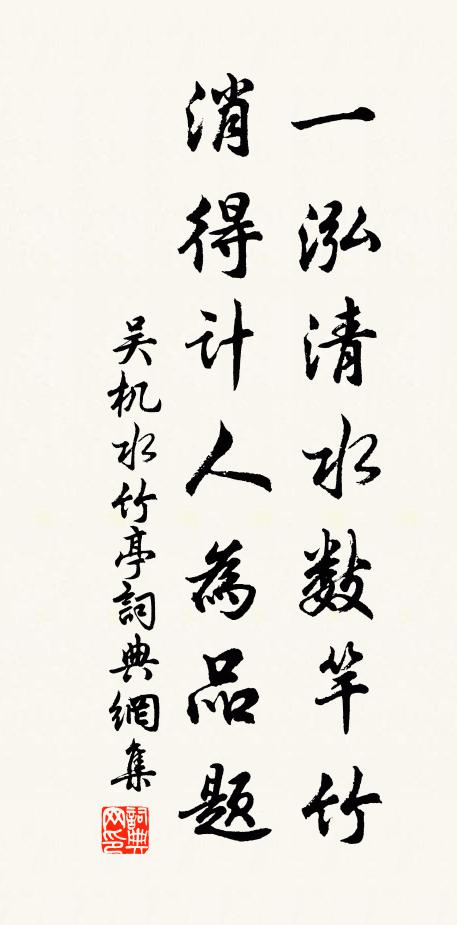 一泓清水数竿竹
消得计人为品题
吴机水竹亭詞典網集
詞典網印